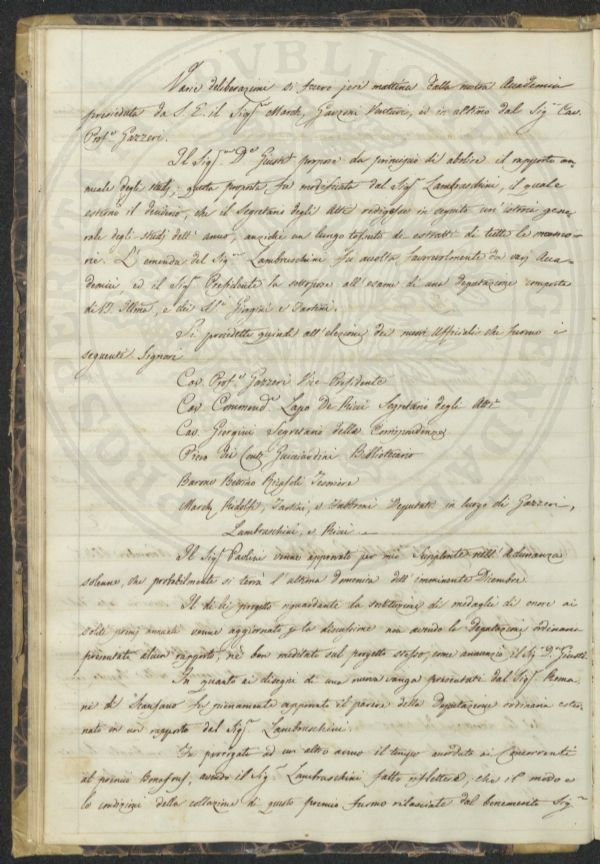 Varie deliberazioni si fecero jeri mattina dalla nostra Accademia
presieduta da S. E. il Sigr March. Garzoni Venturi, ed in ultimo dal Sigr Cav.
Profe Gazzeri.
Il Sigr De Giusti propose da principio di abolire il rapporto an-
nuale degli studj; questa proposta fu modificata dal Sigr Lambruschini, il quale
esternò il desiderio, che il Segretario degli Atti redigesse in seguito un'istoria gene-
rale degli studj dell'anno, anzichè un lungo tessuto di estratti di tutte le memo-
rie. L'emenda del Sigr Lambruschini fu accolta favorevolmente da varj Acca-
demici, ed il Sigr Presidente la sottopose all'esame di una Deputazione composta
di e dei SSri Giorgini e Tartini.
Si procedette quindi all'elezione dei nuovi Uffiziali che furono i
seguenti Signori
Cav. Profe Gazzeri Vice-Presidente
Cav. Commendr Lapo De Ricci Segretario degli Atti
Cav. Giorgini Segretario delle Corrispondenze
Piero dei Conti Guicciardini Bibliotecario
Barone Bettino Ricasoli Tesoriere
March. Ridolfi, Tartini, e Fabbroni Deputati in luogo di Gazzeri,
Lambruschini, e Ricci.
Il Sigr Paolini venne approvato per mio Supplente nell'Adunanza
solenne, che probabilmente si terrà l'ultima Domenica dell'imminente Dicembre.
Il di lei progetto riguardante la sostituzione di medaglie di onore ai
soliti premj annuali venne aggiornato per la discussione non avendo la Deputazione ordinaria
presentato alcun rapporto, nè ben meditato sul progetto stesso, come annunziò il Sigr De Giusti.
In quanto ai disegni di una nuova vanga presentati dal Sigr Roma-
ni di Scansano fu pienamente approvato il parere della Deputazione ordinaria ester-
nato in un rapporto del Sigr Lambruschini.
Fu prorogato ad un altro anno il tempo accordato ai Concorrenti
al premio Bonafous, avendo il Sigr Lambruschini fatto riflettere che il modo e
le condizioni della collazione di questo premio furono rilasciate dal benemerito Sigr